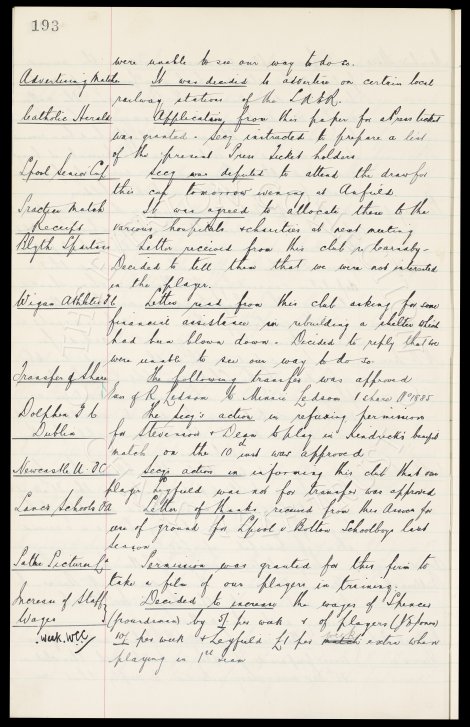 193
were unable to see our way to do so.
Advertising Matches It was decided to advertise on certain local
railway stations of the L.O.R.
Catholic Herald Application from this paper for a Press ticket
was granted. Secy instructed to prepare a list
of the present Press ticket holders
Lpool Senior Cup Secy was deputed to attend the draw for
this cup tomorrow evening at Anfield
Practice Match It was agreed to allocate these to the
Receipts various hospitals & charities at next meeting
Blyth Spartans Letter received from this club re Coarnaby-
Decided to tell them that we were not interested
in the player.
Wigan Athletic F.C Letter read from this club asking for some
financial assistance in rebuilding a shelter which
had been blown down. Decided to reply that we
were unable to see our way to do so.
Transfer of Share The following transfer was approved
Exs of R. Ledson to Minnie Ledson 1 share No 1885
Dolphin F C The secy's action in refusing permission
Dublin for Stevenson & Dean to play in Kendrick's benefit
match on the 10th inst was approved
Newcastle U. FC Secy's action in informing this club that our
player Leyfield was not for transfer was approved
Lancs Schools FA Letter of thanks received from this Asscn for
use of ground for Lpool v Bolton Schoolboys last
season
Pathe Pictures Ld Permission was granted for this firm to
take a film of our players in training.
Increase of Staff Decided to increase the wages of Spencer
Wages (groundsman) by 5/- per week & of players (J E Jones)
week. WCC 10/- per week & Leyfield £1 per match extra when
playing in 1st team